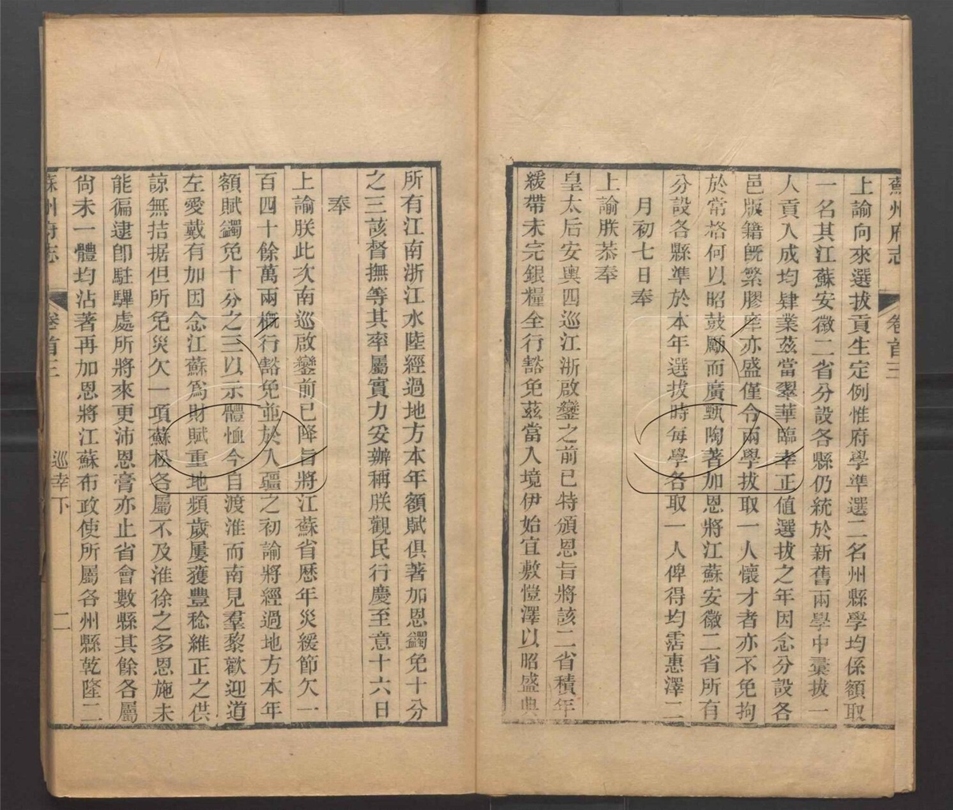 蘇州府志
卷首三
上諭向來選拔貢生定例惟府學準選二名州縣學均係額取
一名其江蘇安徽二省分設各縣仍統於新舊兩學中彙拔一
人貢入成均肄業茲當翠華臨幸正值選拔之年因念分設各
邑版籍旣繁膠庠亦盛僅令兩學拔取一人懷才者亦不免拘
於常格何以昭鼓勵而廣甄陶著加恩將江蘇安徽二省所有
分設各縣準於本年選拔時每學各取一人俾得均霑惠澤二
月初七日奉
上諭朕恭奉
皇太后安輿四巡江浙啟鑾之前已特頒恩旨將該二省積年
緩帶未完銀糧全行豁免茲當入境伊始宜敷愷澤以昭盛典
所有江南浙江水陸經過地方本年額賦俱著加恩蠲免十分
之三該督撫等其率屬實力妥辦稱朕觀民行慶至意十六日
奉
上諭朕此次南巡啟鑾前已降旨將江蘇省歷年災緩節欠一
百四十餘萬兩槪行豁免並於入疆之初諭將經過地方本年
額賦蠲免十分之三以示體恤今自渡淮而南見羣黎歡迎道
左愛戴有加因念江蘇爲財賦重地頻歲屢獲豐稔維正之供
諒無拮据但所免災欠一項蘇松各屬不及淮徐之多恩施未
能徧逮卽駐驆處所將來更沛恩膏亦止省會數縣其餘各屬
尙未一體均沾著再加恩將江蘇布政使所屬各州縣乾隆二
蘇州府志
卷首三
巡幸下
二